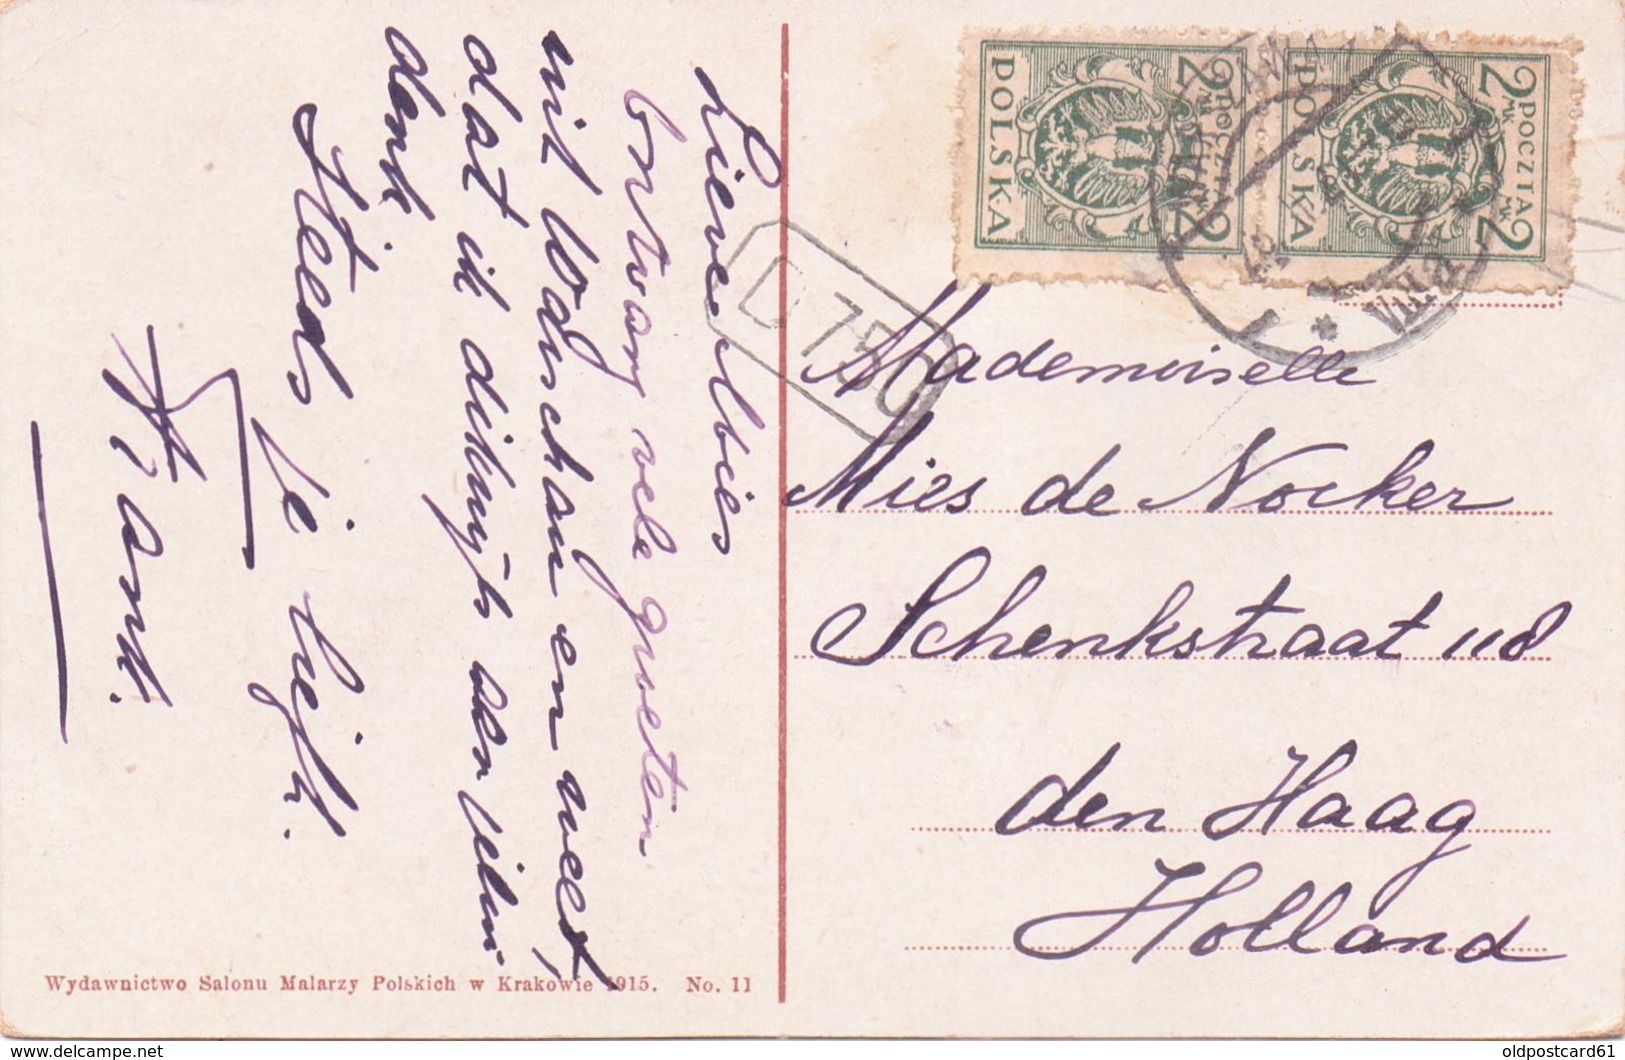 Lieve Bies
Ontvang vele groeten
uit Warschau en weet,
dat ik dikwijls aan
denk
Steeds je
Frank.
Wydawnictwo Salonu Malarzy Polskich w Krakowie 1915. No. 11
D 750
2 MK POCZTA MK 2
POLSKA
2 MK POCZTA MK 2
POLSKA
Mademoiselle
Mies de Nocker
Schenkstraat 118
den Haag
Holland
oldpostcard61
www.delcampe.net